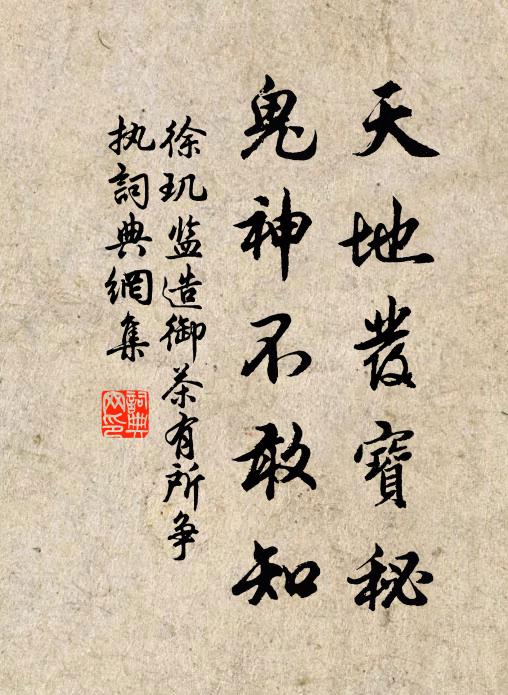 天地發寶秘
鬼神不敢知
徐玑监造御茶有所争
执詞典網集
詞典
网印